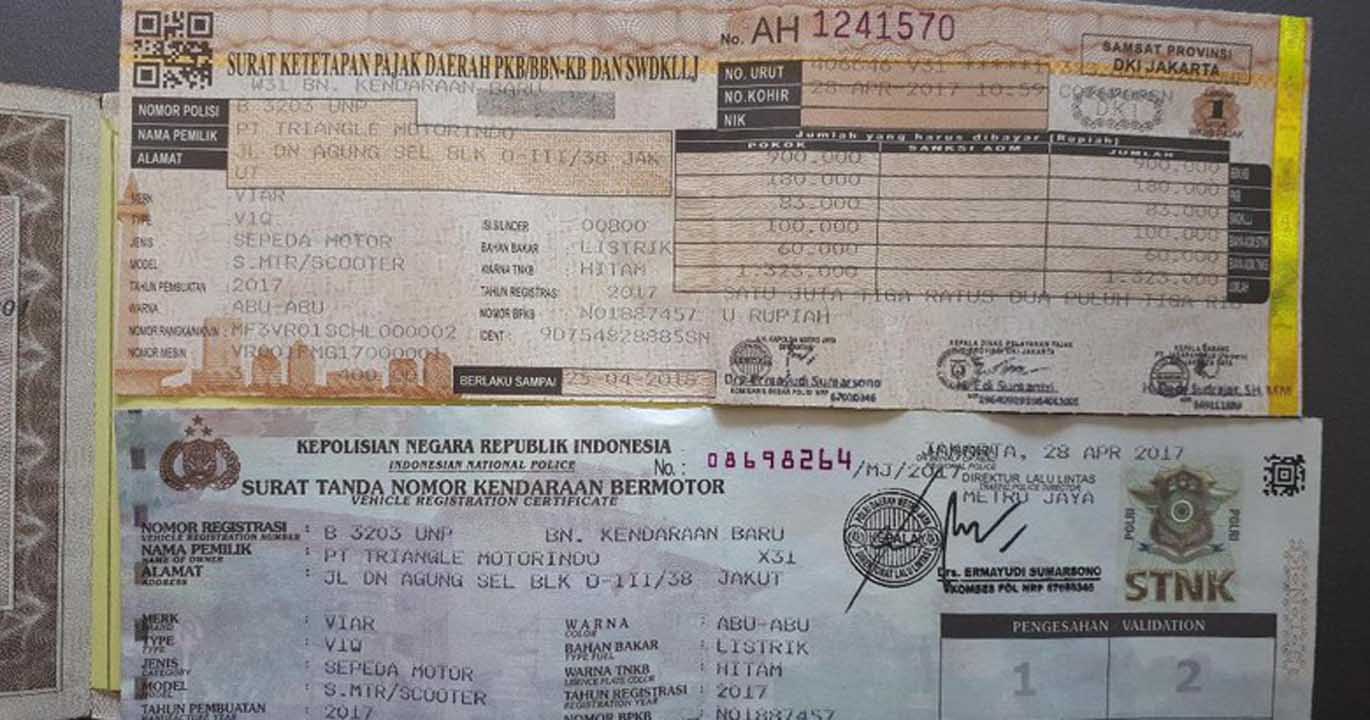 No. AH 1241570
SAMSAT PROVINSI
DKI JAKARTA
SURAT KETETAPAN PAJAK DAERAH PKB/BBN-KB DAN SWDKLLJ
W31 BN. KENDARAAN BARU
NO. URUT
NO.KOHIR 28 APR-2017 10:59
NIK
DKI
1
NOMOR POLISI B 3203 UNP
NAMA PEMILIK PT TRIANGLE MOTORINDO
ALAMAT JL DN AGUNG SEL BLK O-III/38 JAK
UT
Jumlah yang harus dibayar (Rupiah)
POKOK SANKSI ADM JUMLAH
900.000 900.000
180.000 180.000
83.000 83.000
100.000 100.000
60.000 60.000
1.323.000 1.323.000
SATU JUTA TIGA RATUS DUA PULUH TIGA RIB
U RUPIAH
MERK VIAR
TYPE V1Q
JENIS SEPEDA MOTOR
MODEL S.MTR/SCOOTER
TAHUN PEMBUATAN 2017
WARNA ABU-ABU
NOMOR RANGKA/NIK/VIN : MF3VR01SCHL000002
NOMOR MESIN VR001FMG17000001
ISI SILINDER 00800
BAHAN BAKAR : LISTRIK
WARNA TNKB : HITAM
TAHUN REGISTRASI : 2017
NOMOR BPKB : N01887457
IDENT : 9D754828885SN
BERLAKU SAMPAI
Drs Ermayudi Sumarsono
KEPOLISIAN NEGARA REPUBLIK INDONESIA
INDONESIAN NATIONAL POLICE
No. : 08698264 /MJ/2017
SURAT TANDA NOMOR KENDARAAN BERMOTOR
VEHICLE REGISTRATION CERTIFICATE
JAKARTA, 28 APR 2017
DIREKTUR LALU LINTAS
METRO JAYA
Drs. ERMAYUDI SUMARSONO
POLRI
POLRI
STNK
NOMOR REGISTRASI : B 3203 UNP BN. KENDARAAN BARU
VEHICLE REGISTRATION NUMBER
NAMA PEMILIK : PT TRIANGLE MOTORINDO X31
NAME OF OWNER
ALAMAT : JL DN AGUNG SEL BLK O-III/38 JAKUT
ADDRESS
MERK : VIAR
BRAND
TYPE : V1Q
TYPE
JENIS : SEPEDA MOTOR
CATEGORY
MODEL : S.MTR/SCOOTER
MODEL
TAHUN PEMBUATAN : 2017
MANUFACTURE YEAR
WARNA : ABU-ABU
COLOR
BAHAN BAKAR : LISTRIK
TYPE FUEL
WARNA TNKB : HITAM
LICENCE PLATE COLOR
TAHUN REGISTRASI : 2017
REGISTRATION YEAR
NOMOR BPKB : N01887457
PENGESAHAN VALIDATION
1 2